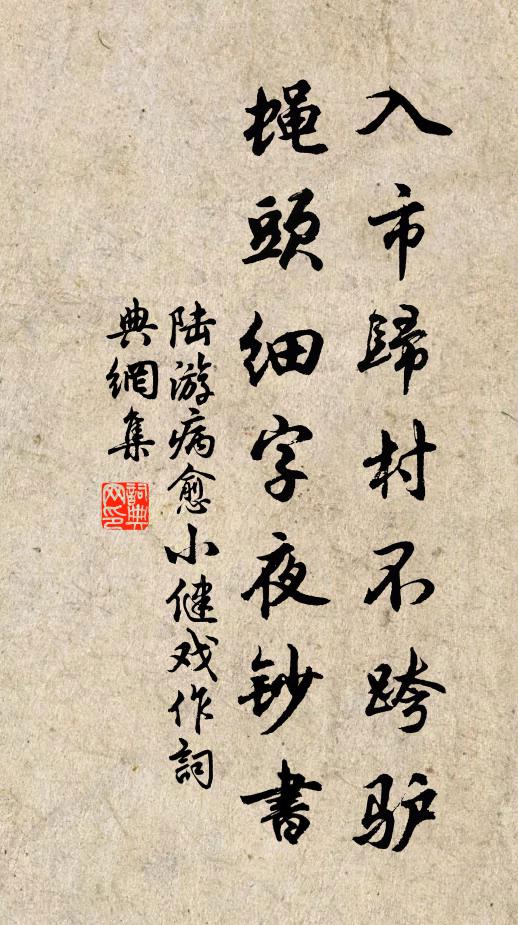 入市歸村不跨驴
蝇頭细字夜鈔書
陆游病愈小健戏作詞
典網集
詞典
网印